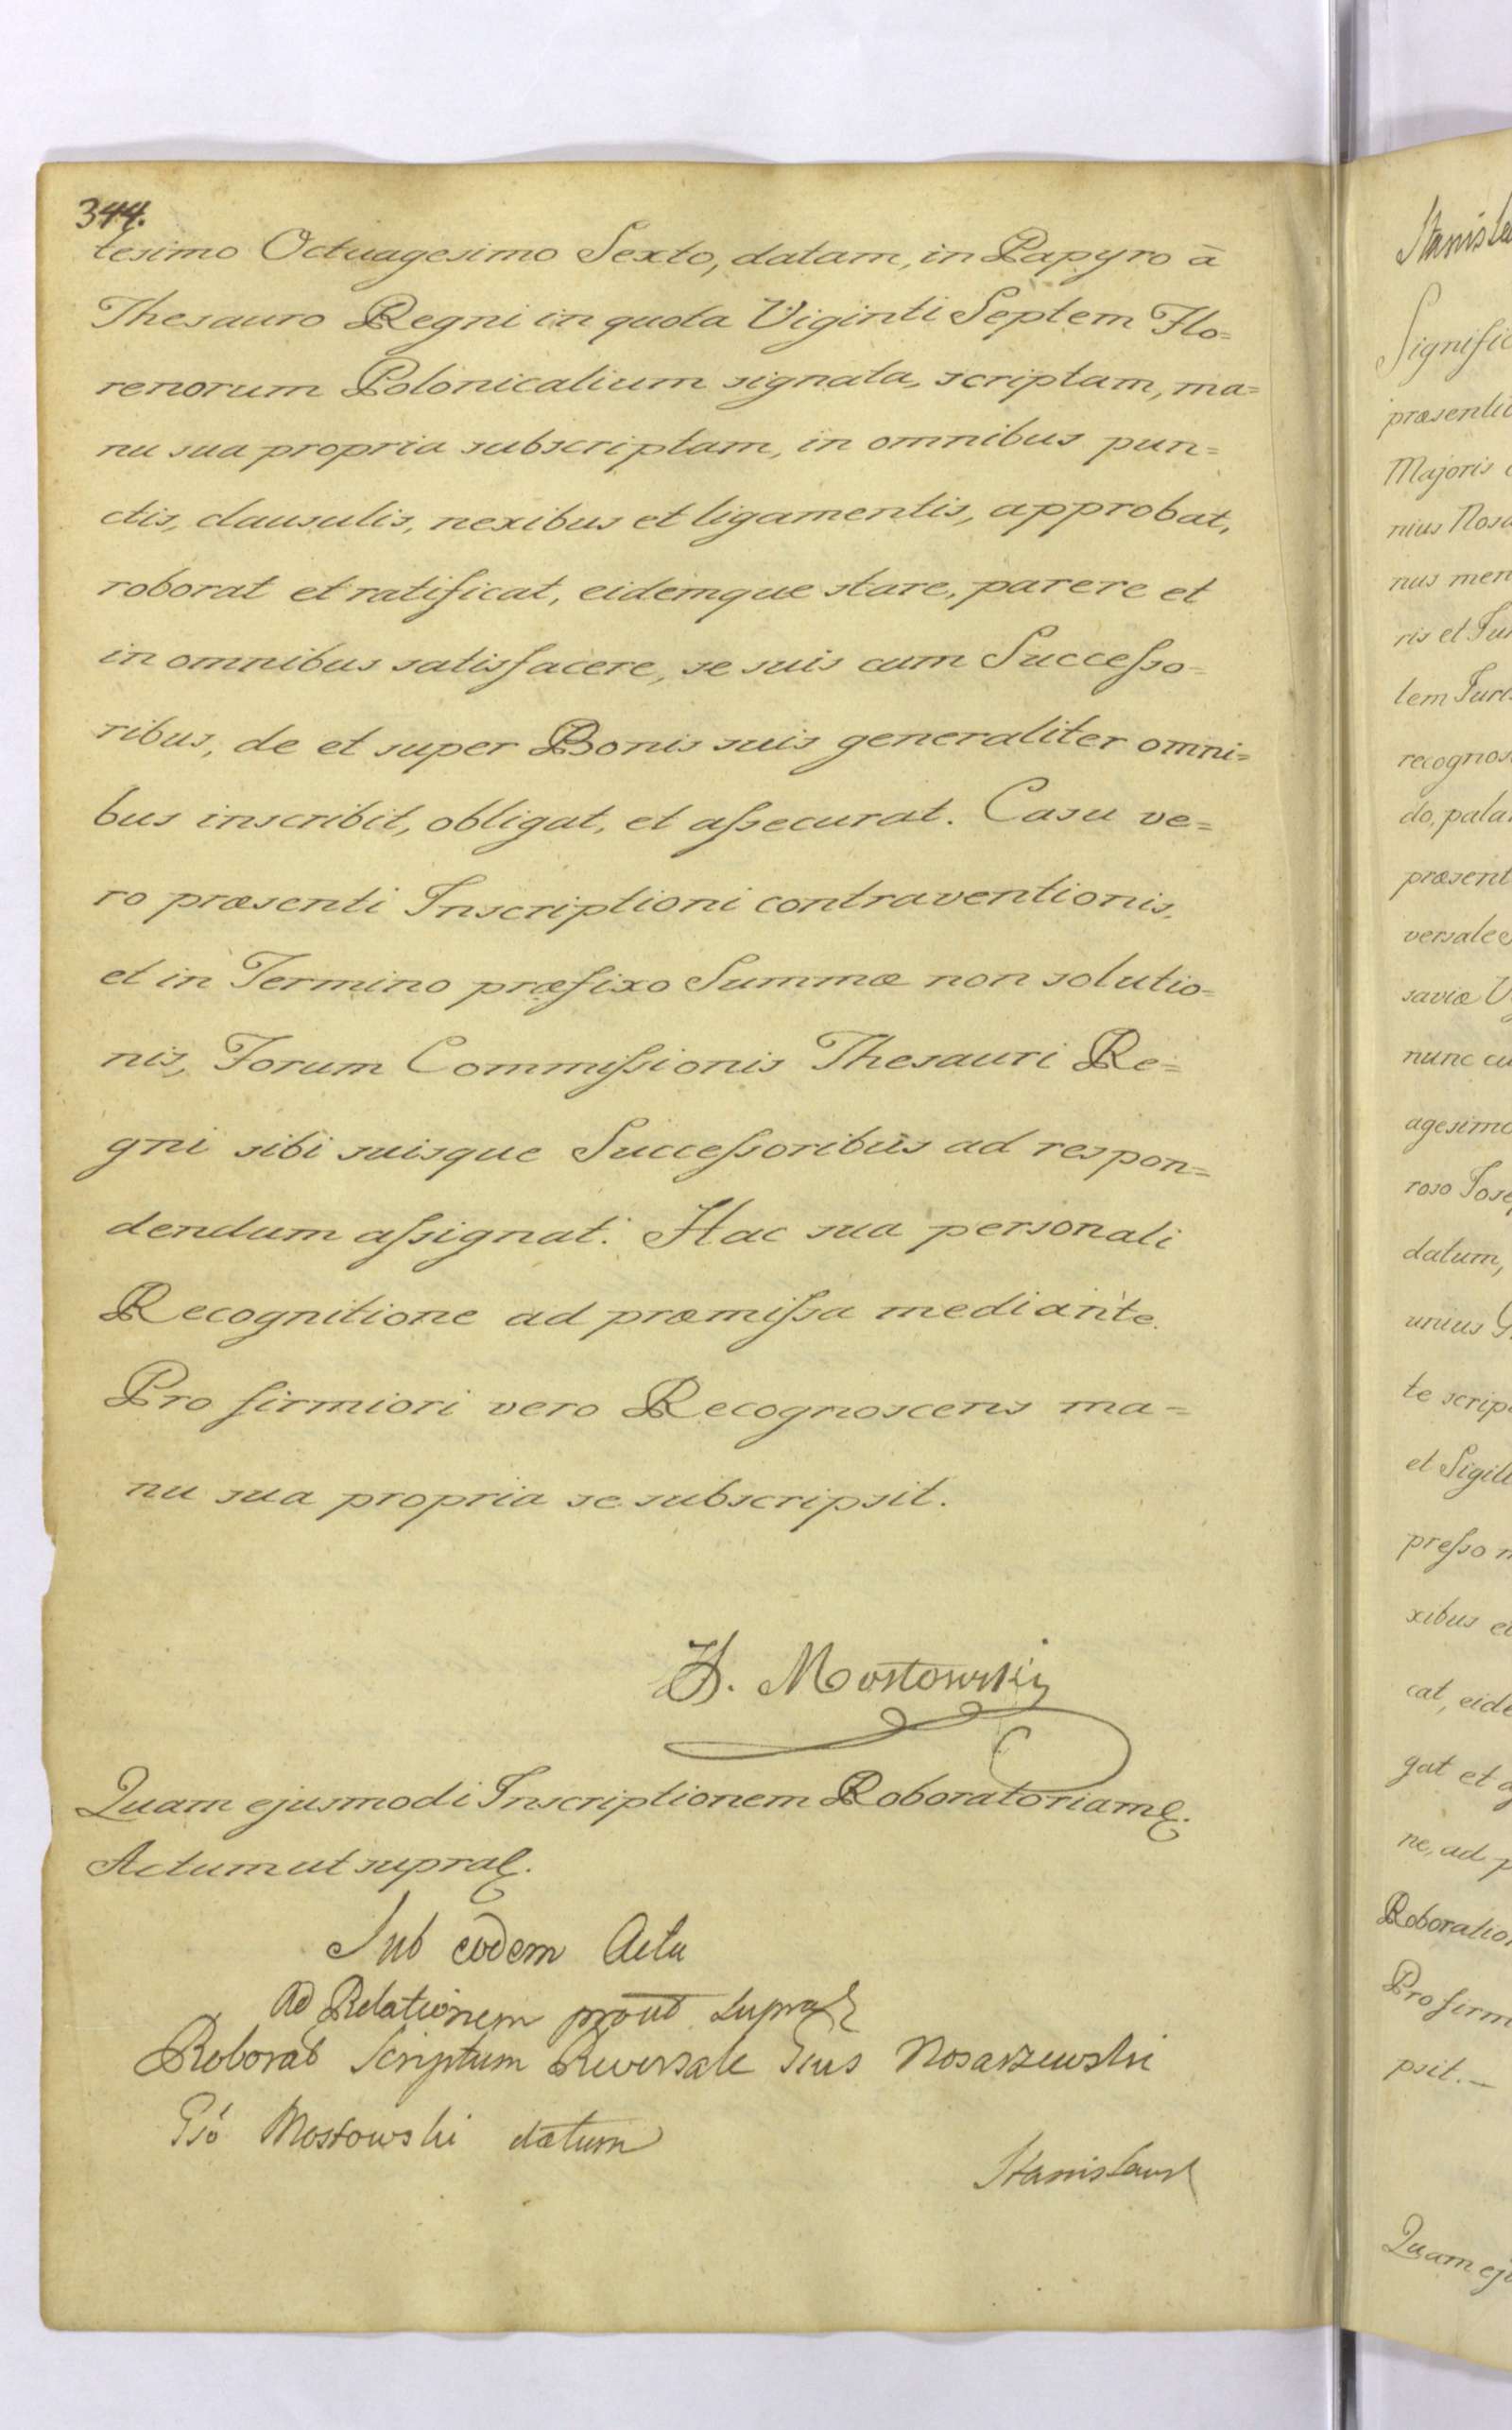 344.
tesimo Octuagesimo Sexto, datam, in Papyro à
Thesauro Regni in quota Viginti Septem Flo=
renorum Polonicalium signata, scriptam, ma=
nu sua propria subscriptam, in omnibus pun=
ctis, clausulis, nexibus et ligamentis, approbat,
roborat et ratificat, eidemque stare, parere et
in omnibus satisfacere, se suis cum Succeſso=
ribus, de et super Bonis suis generaliter omni=
bus inscribit, obligat, et aſsecurat. Casu ve=
ro præsenti Inscriptioni contraventionis,
et in Termino præfixo Summæ non solutio=
nis, Forum Commiſsionis Thesauri Re=
gni sibi suisque Succeſsoribus ad respon=
dendum aſsignat. Hac sua personali
Recognitione ad præmiſsa mediante.
Pro firmiori vero Recognoscens ma=
nu sua propria se subscripsit.
Mostowski
Quam ejusmodi Inscriptionem Roboratoriam
Actum ut supra
Sub eodem Actu
Ad Relationem prout supra
Roborat Scriptum Reversale Nosarzewski
Mostowski datum
Stanislaus
Stanisla
Signific
præsenti
Majoris
nius Nosa
nus men
ris et Ju
tem Juri
recognos
do, pala
præsent
versale
saviæ V
nunc cu
agesimo
roso Jose
datum,
unius G
te scrip
et Sigil
preſso n
xibus et
cat, eide
gat et a
ne, ad p
Roboratio
Pro firm
psit.—
Quam ej